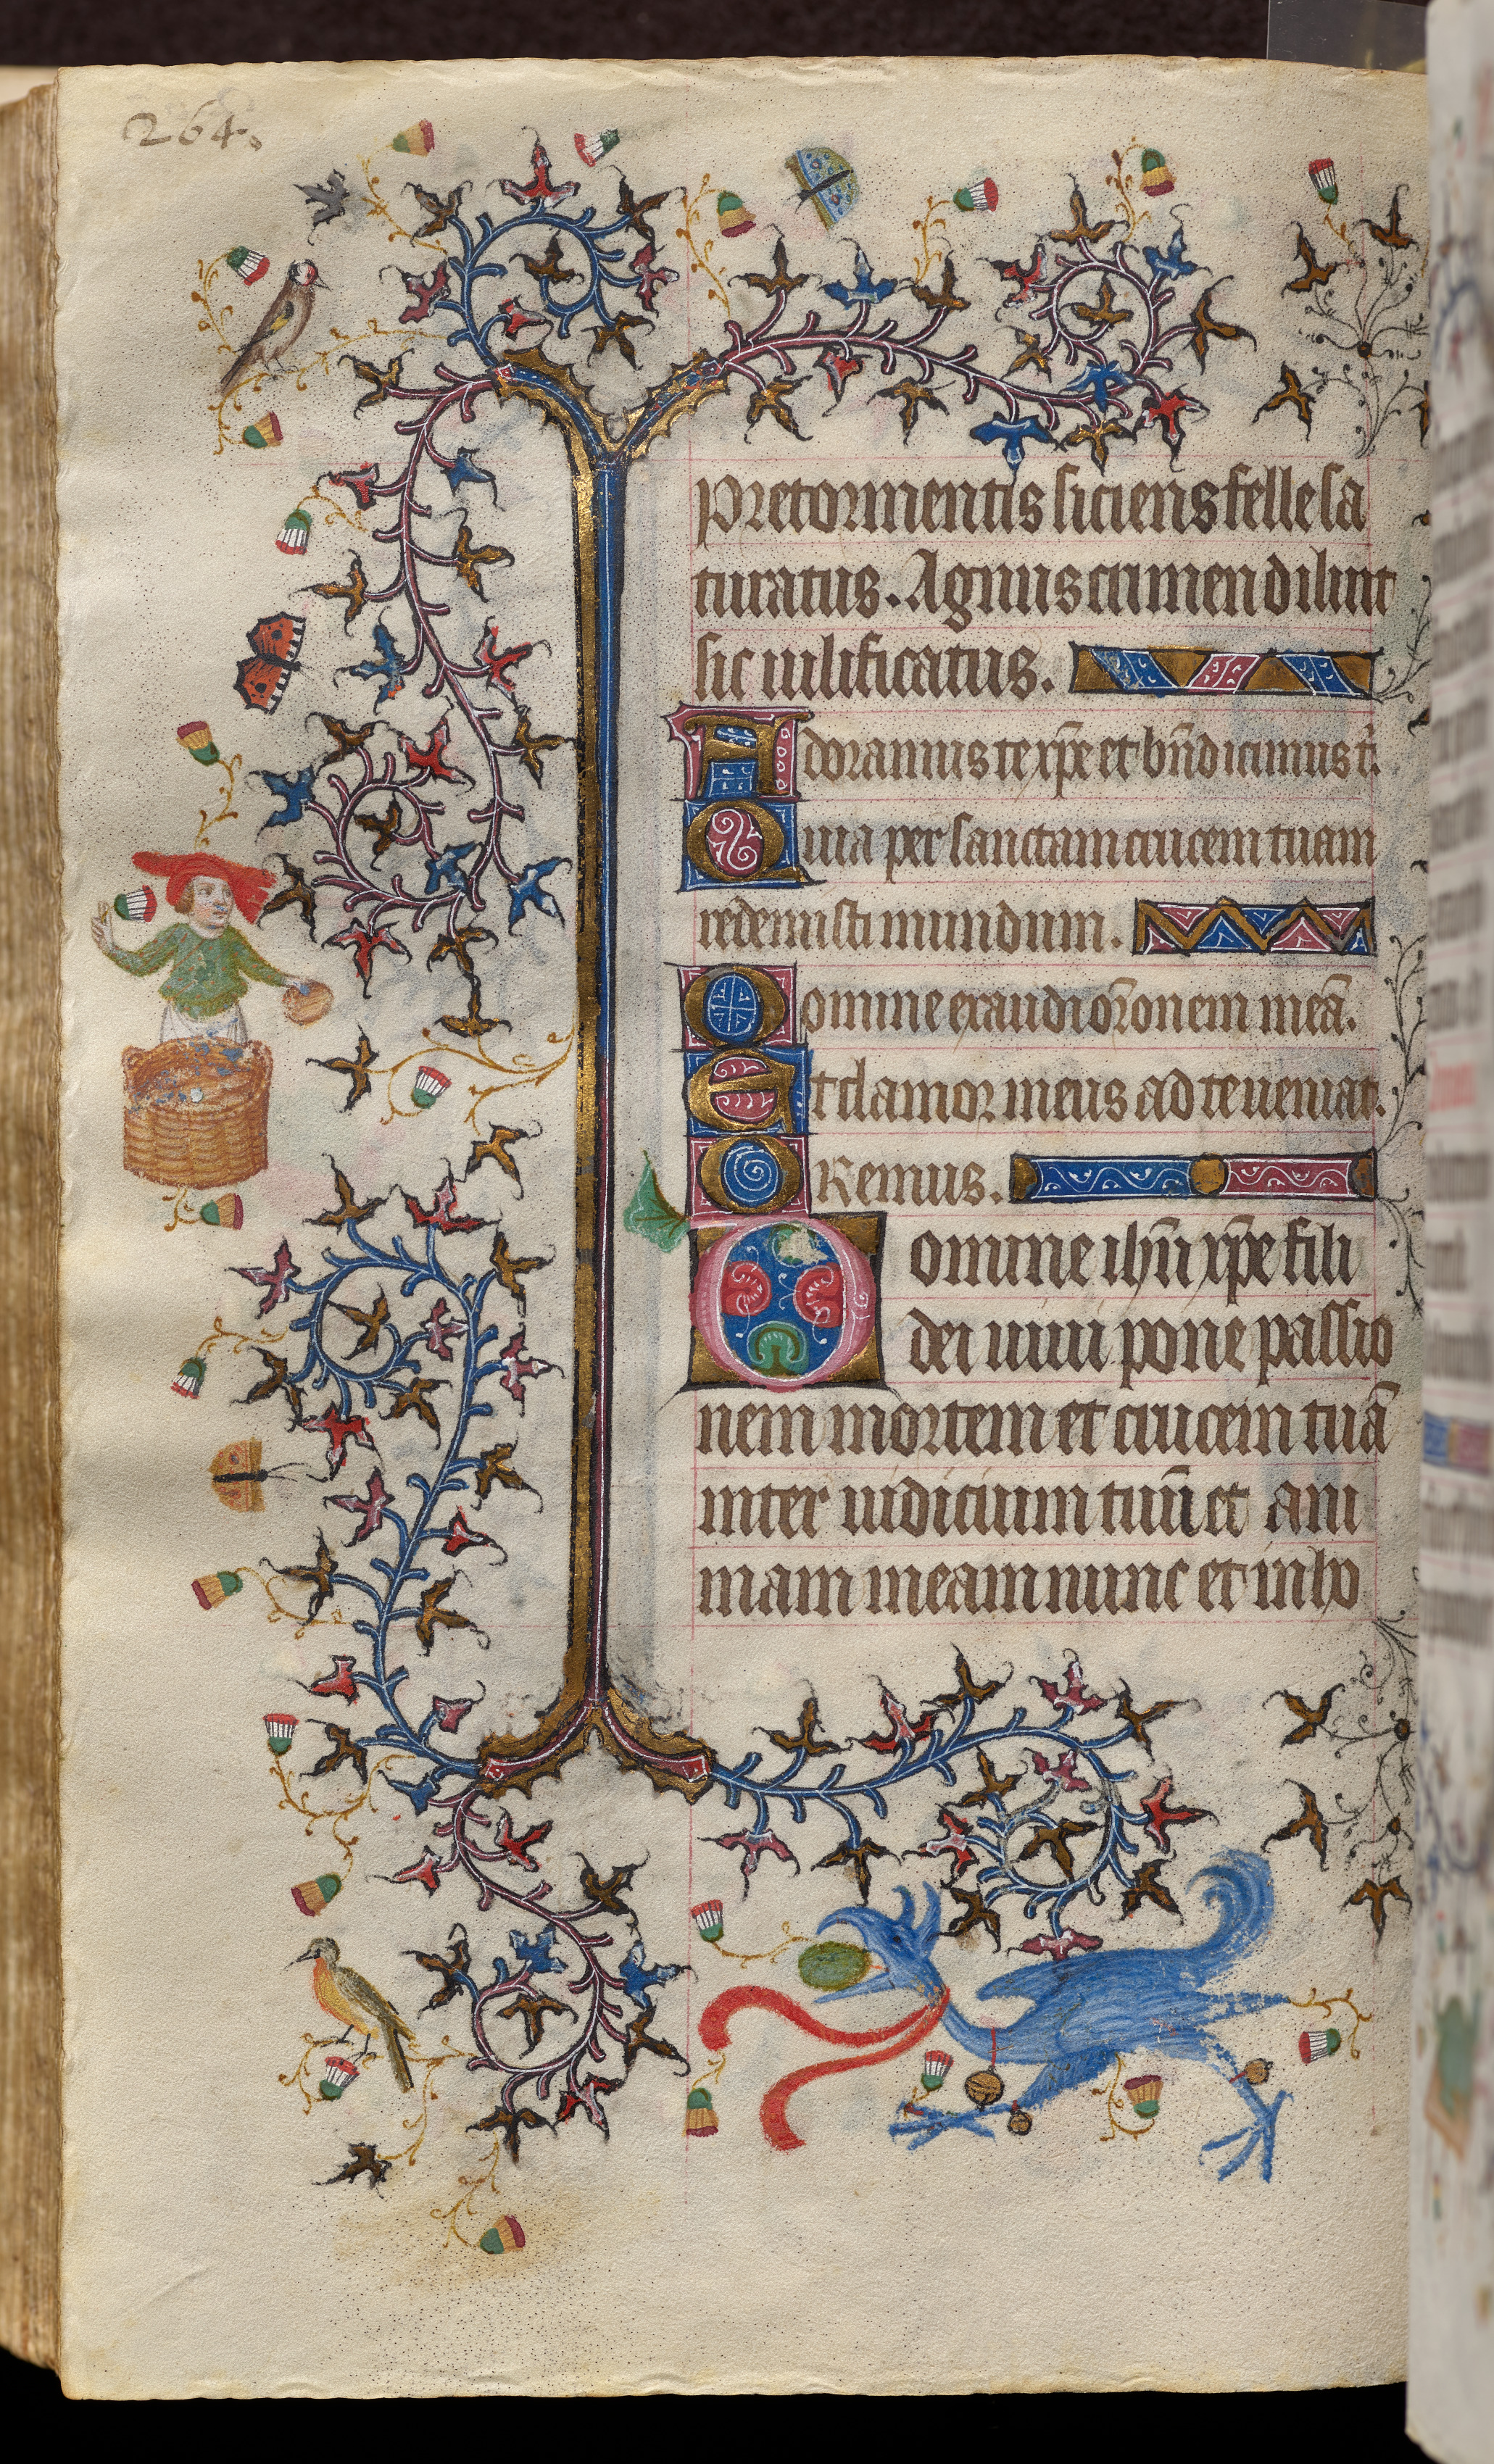 264.
pre tormentis siciens felle sa
turatus. Agnus crimen diluit
sic uilificatus.
Adoramus te xp̄e et bn̄dicimus t̄.
Quia per sanctam crucem tuam
redemisti mundum.
Domine exaudi or̄onem meā.
Et clamor meus ad te ueniat.
Oremus.
Domine ihū xp̄e fili
dei uiui pone passio
nem mortem et crucem tuā
inter iudicium tuū et ani
mam meam nunc et in ho